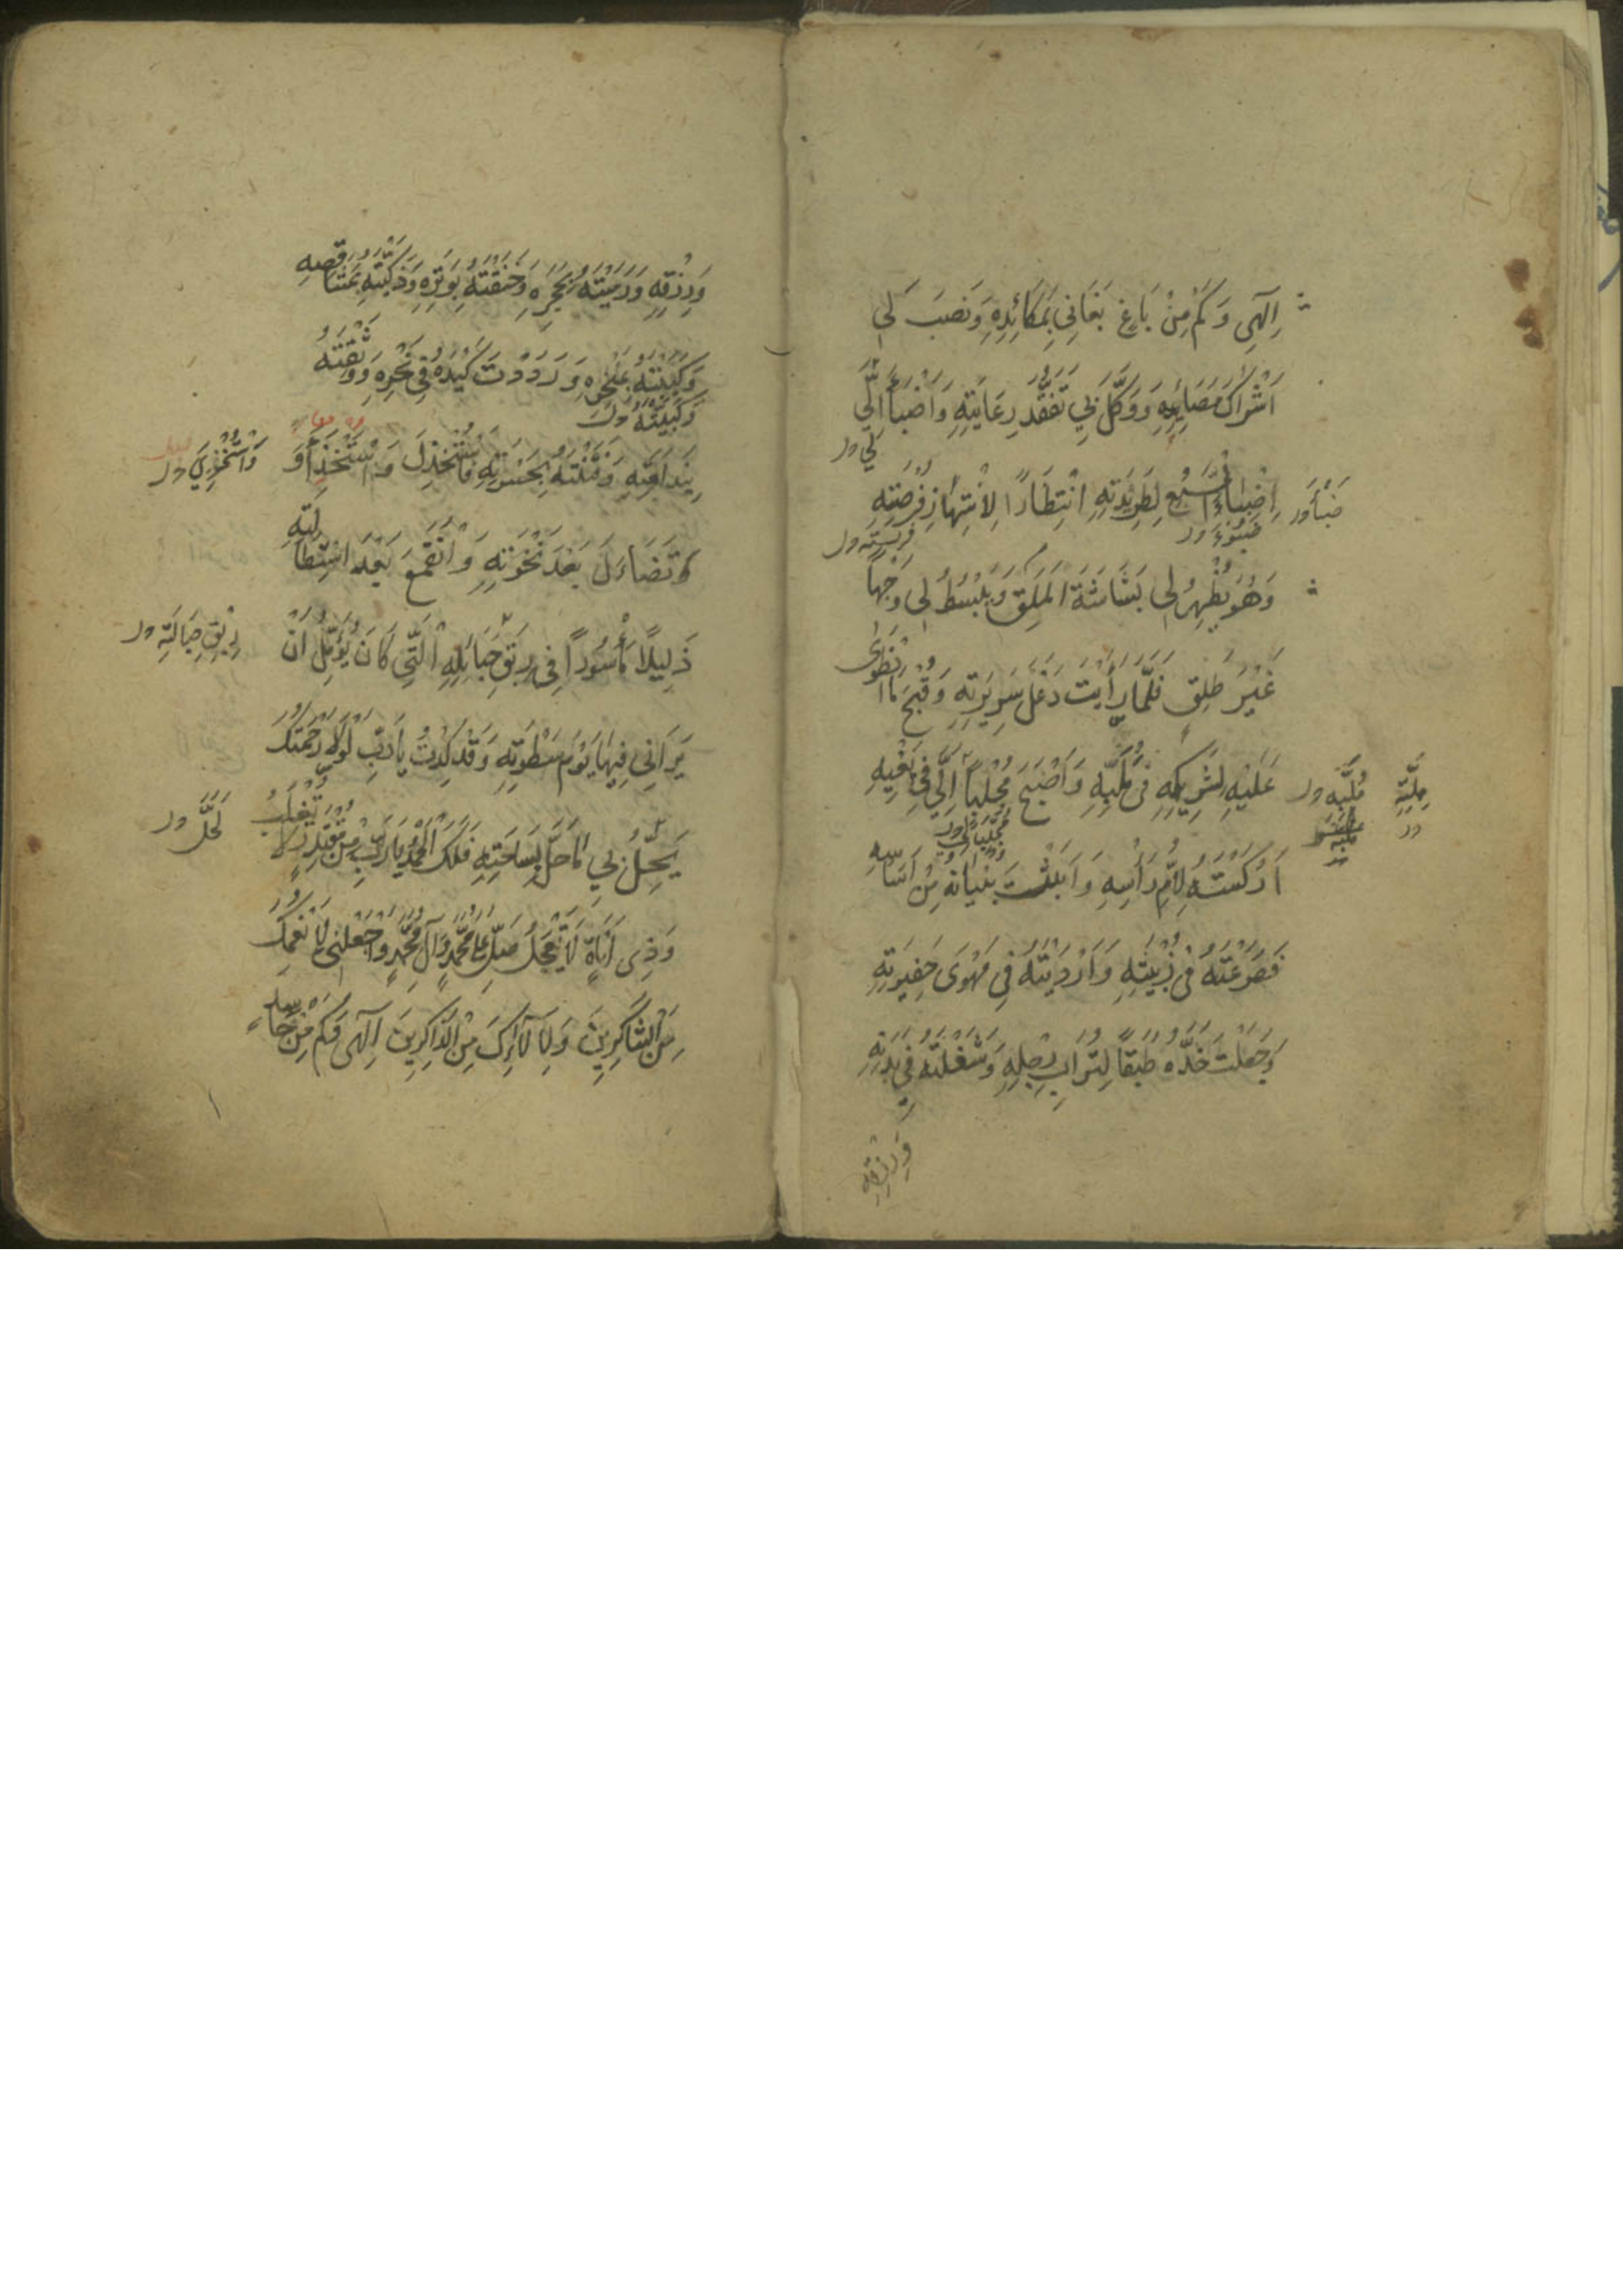 اِلٰهِي وَكَمْ مِنْ بَاغٍ بَغَانِي بِمَكَائِدِهِ وَنَصَبَ لِي
اَشْرَاكَ مَصَايِدِهِ وَوَكَّلَ بِي تَفَقُّدَ رِعَايَتِهِ وَاَضْبَأَ اِلَيَّ
لِي ور
اِضْبَاءَ السَّبُعِ لِطَرِيدَتِهِ انْتِظَارًا لِانْتِهَازِ فُرْصَتِهِ
ضَبَأَ ور
ضُبُوءَ ور
فَرِيسَتِهِ ور
وَهُوَ يُظْهِرُ لِي بَشَاشَةَ الْمَلَقِ وَيَبْسُطُ لِي وَجْهًا
غَيْرَ طَلِقٍ فَلَمَّا رَأَيْتَ دَغَلَ سَرِيرَتِهِ وَقُبْحَ مَا انْطَوٰى
عَلَيْهِ لِشَرِيكِهِ فِي مُلَبِّهِ وَاَصْبَحَ مُجْلِبًا اِلَيَّ فِي بَغْيِهِ
ملّته ور
مُجْلِبًا لِي ور
اَرْكَسْتَهُ لِاُمِّ رَأْسِهِ وَاَتَيْتَ بُنْيَانَهُ مِنْ اَسَاسِهِ
فَصَرَعْتَهُ فِي زُبْيَتِهِ وَاَرْدَيْتَهُ فِي مَهْوٰى حَفِيرَتِهِ
وَجَعَلْتَ خَدَّهُ طَبَقًا لِتُرَابِ رِجْلِهِ وَشَغَلْتَهُ فِي بَدَنِهِ
وَرِزْقِهِ
وَرِزْقِهِ وَرَمَيْتَهُ بِحَجَرِهِ وَخَنَقْتَهُ بِوَتَرِهِ وَذَكَّيْتَهُ بِمَشَاقِصِهِ
وَكَبَبْتَهُ بِمَنْخَرِهِ وَرَدَدْتَ كَيْدَهُ فِي نَحْرِهِ وَوَثَقْتَهُ
وَكَبَيْتَهُ ور
بِنَدَامَتِهِ وَفَتَنْتَهُ بِحَسْرَتِهِ فَاسْتَخْذَلَ وَاسْتَخْذَأَ وَ
وَاسْتُخْذِيَ ور
تَضَاءَلَ بَعْدَ نَخْوَتِهِ وَانْقَمَعَ بَعْدَ اسْتِطَالَتِهِ
ذَلِيلًا مَأْسُورًا فِي رِبَقِ حَبَائِلِهِ الَّتِي كَانَ يُؤَمِّلُ اَنْ
رِبْقِ حِبَالَتِهِ ور
يَرَانِي فِيهَا يَوْمَ سَطْوَتِهِ وَقَدْ كِدْتُ يَا رَبِّ لَوْلَا رَحْمَتُكَ
يَحِلُّ بِي مَا حَلَّ بِسَاحَتِهِ فَلَكَ الْحَمْدُ يَا رَبِّ مِنْ مُقْتَدِرٍ لَا يُغْلَبُ
لَحَلَّ ور
وَذِي اَنَاةٍ لَا يَعْجَلُ صَلِّ عَلٰى مُحَمَّدٍ وَآلِ مُحَمَّدٍ وَاجْعَلْنِي لِاَنْعُمِكَ
مِنَ الشَّاكِرِينَ وَلِآلَائِكَ مِنَ الذَّاكِرِينَ اِلٰهِي وَكَمْ مِنْ حَاسِدٍ